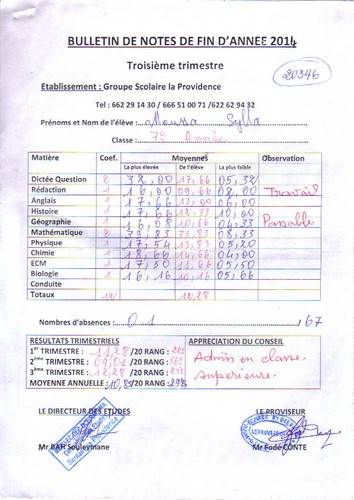 BULLETIN DE NOTES DE FIN D'ANNEE 2014
Troisième trimestre
20346
Etablissement : Groupe Scolaire la Providence
Tel : 662 29 14 30 / 666 51 00 71 /622 62 94 32
Prénoms et Nom de l'élève : Moussa Sylla
Classe : 7e Année
Matière Coef. Moyennes Observation
La plus élevée De l'élève La plus faible
Dictée Question 2 38,00 17,66 05,32
Rédaction 1 16,00 09,66 08,00 Travail
Anglais 1 17,66 13,00 06,00
Histoire 1 17,66 12,33 10,00
Géographie 1 16,08 10,66 04,33 Passable
Mathématique 2 39,83 33,83 08,33
Physique 1 17,54 13,83 05,20
Chimie 1 18,66 14,66 04,00
ECM 1 17,50 11,66 05,50
Biologie 1 16,16 10,16 05,66
Conduite
Totaux 12 12,28
Nombres d'absences : 01 /67
RESULTATS TRIMESTRIELS APPRECIATION DU CONSEIL
1er TRIMESTRE : 11,28 /20 RANG :
2ème TRIMESTRE : 09,01 /20 RANG :
3ème TRIMESTRE : 12,28 /20 RANG :
MOYENNE ANNUELLE : 10,85 /20 RANG : 29e
Admis en classe
supérieure.
LE DIRECTEUR DES ETUDES LE PROVISEUR
Mr BAH Souleymane Mr Fodé CONTE